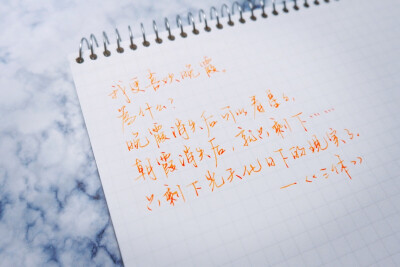 我更喜欢晚霞。
为什么？
晚霞消失后可以看星星。
朝霞消失后，就只剩下……
只剩下光天化日下的现实了。
—《三体》